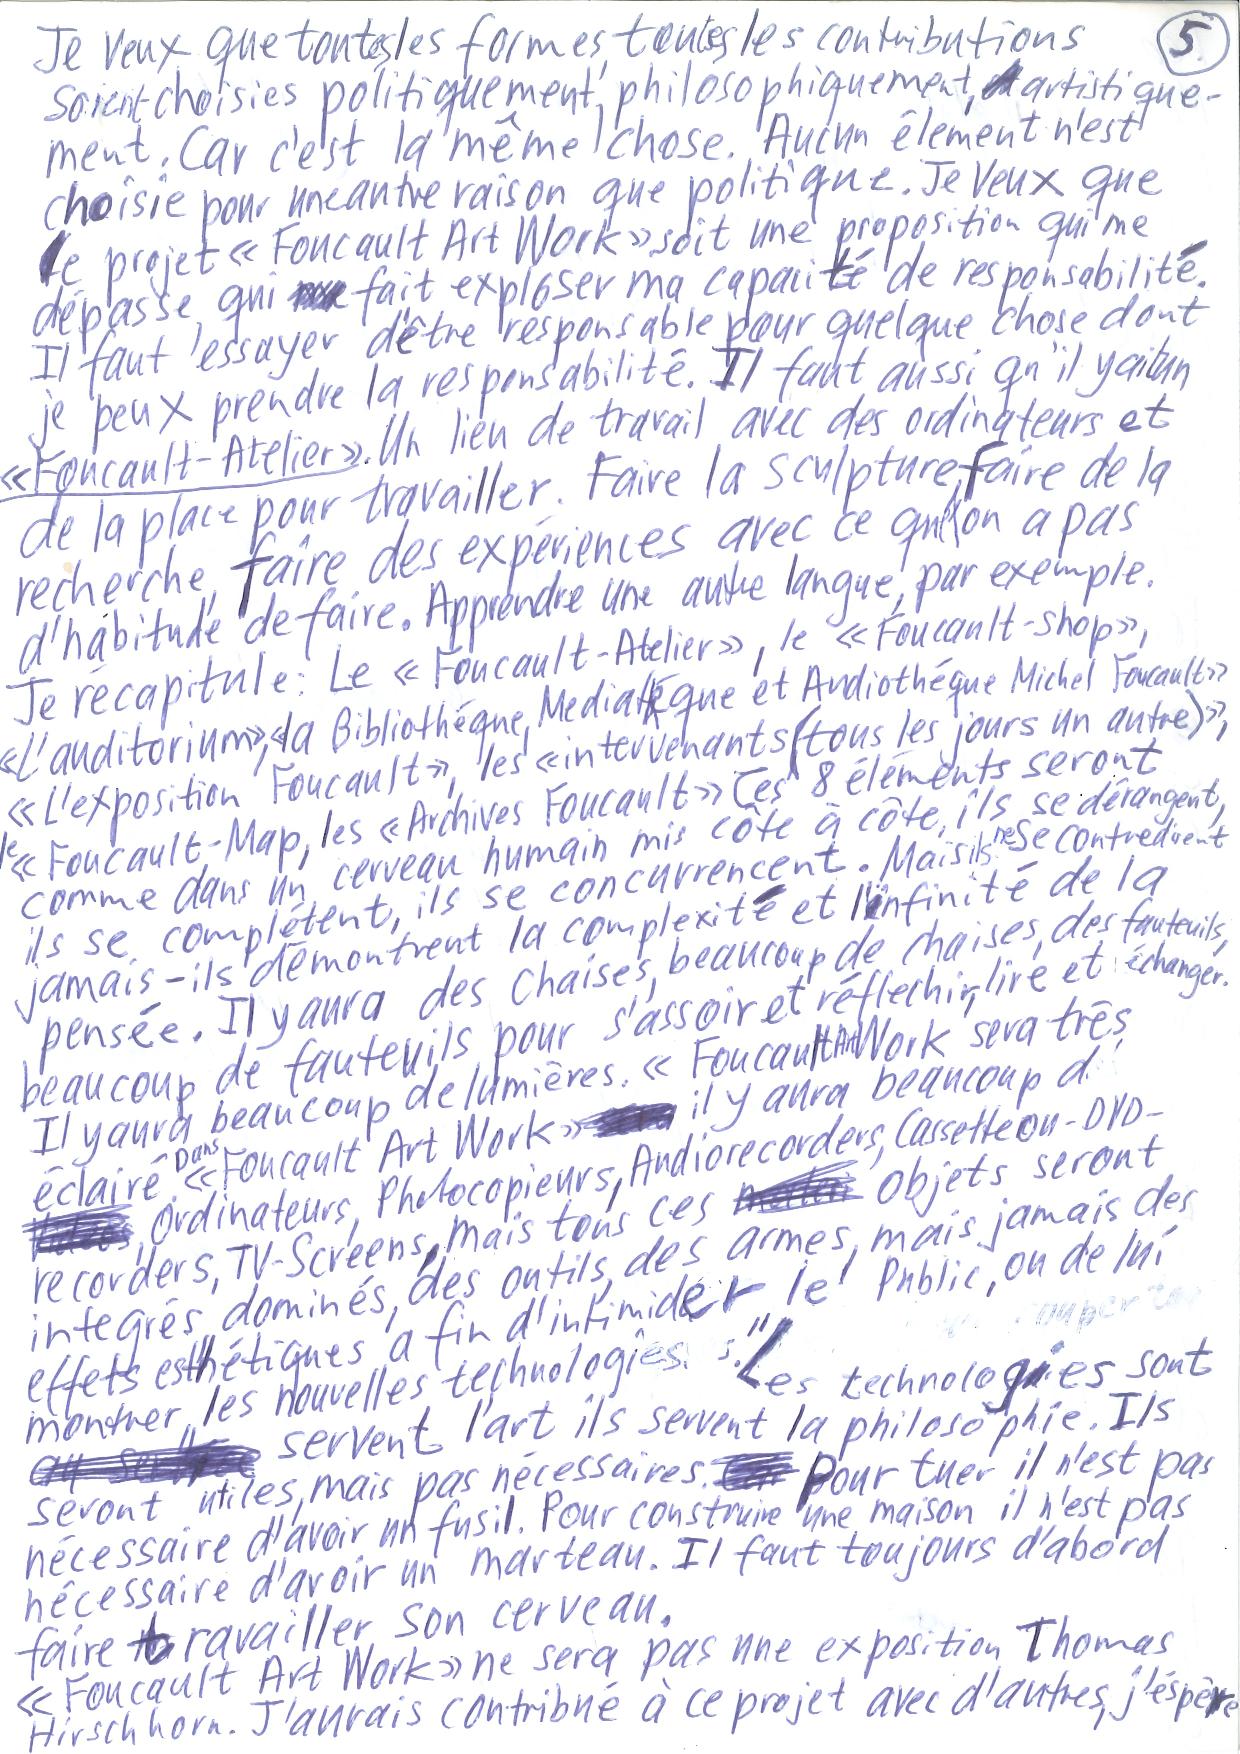 5
Je veux que toutes les formes, toutes les contributions
soient choisies politiquement, philosophiquement, artistique-
ment. Car c'est la même chose. Aucun élement n'est
choisie pour une autre raison que politique. Je veux que
le projet « Foucault Art Work » soit une proposition qui me
dépasse qui fait exploser ma capacité de responsabilité.
Il faut l'essayer d'être responsable pour quelque chose dont
je peux prendre la responsabilité. Il faut aussi qu'il y ait un
«Foucault-Atelier». Un lieu de travail avec des ordinateurs et
de la place pour travailler. Faire la sculpture, faire de la
recherche, faire des expériences avec ce qu'on a pas
d'habitude de faire. Apprendre une autre langue, par exemple.
Je récapitule: Le « Foucault-Atelier», le « Foucault-Shop»,
«L'auditorium», «la Bibliothéque, Mediathéque et Audiothéque Michel Foucault»
« L'exposition Foucault», les «intervenants (tous les jours un autre)»,
le « Foucault-Map, les « Archives Foucault» Ces 8 éléments seront
comme dans un cerveau humain mis côte à côte, ils se dérangent,
ils se complètent, ils se concurrencent. Mais ils ne se contredisent
jamais - ils démontrent la complexité et l'infinité de la
pensée. Il y aura des chaises, beaucoup de chaises, des fauteuils,
beaucoup de fauteuils pour s'assoir et réflechir, lire et échanger.
Il y aura beaucoup de lumières. « Foucault Art Work sera très
éclairé. Dans «Foucault Art Work» il y aura beaucoup d
ordinateurs, Photocopieurs, Audiorecorders, Cassette ou -DVD-
recorders, TV-Screens, mais tous ces objets seront
integrés, dominés, des outils, des armes, mais jamais des
effets esthétiques a fin d'intimider le Public, ou de lui
montrer les nouvelles technologies. Les technologies sont
servent l'art ils servent la philosophie. Ils
seront utiles, mais pas nécessaires. Pour tuer il n'est pas
nécessaire d'avoir un fusil. Pour construire une maison il n'est pas
nécessaire d'avoir un marteau. Il faut toujours d'abord
faire travailler son cerveau.
« Foucault Art Work» ne sera pas une exposition Thomas
Hirschhorn. J'aurais contribué à ce projet avec d'autres, j'éspère